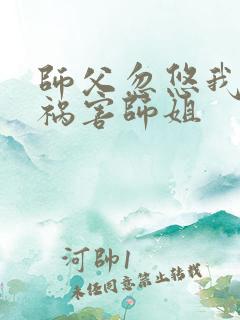 師父忽悠我
禍害師姐
河帥1
未经同意禁止转载